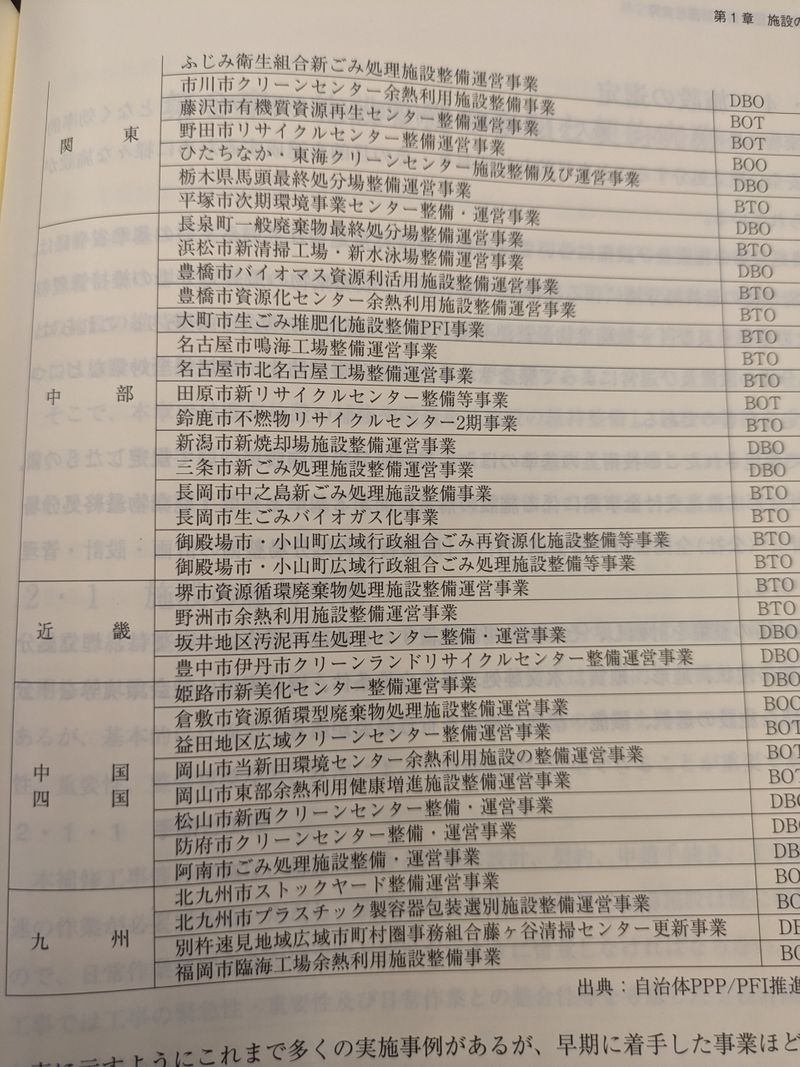 第1章 施設の
関東
ふじみ衛生組合新ごみ処理施設整備運営事業 DBO
市川市クリーンセンター余熱利用施設整備事業 BOT
藤沢市有機質資源再生センター整備運営事業 BOT
野田市リサイクルセンター整備運営事業 BOO
ひたちなか・東海クリーンセンター施設整備及び運営事業 DBO
栃木県馬頭最終処分場整備運営事業 BTO
平塚市次期環境事業センター整備・運営事業 DBO
中部
長泉町一般廃棄物最終処分場整備運営事業 BTO
浜松市新清掃工場・新水泳場整備運営事業 DBO
豊橋市バイオマス資源利活用施設整備運営事業 BTO
豊橋市資源化センター余熱利用施設整備運営事業 BTO
大町市生ごみ堆肥化施設整備PFI事業 BTO
名古屋市鳴海工場整備運営事業 BTO
名古屋市北名古屋工場整備運営事業 BTO
田原市新リサイクルセンター整備等事業 BOT
鈴鹿市不燃物リサイクルセンター2期事業 BTO
新潟市新焼却場施設整備運営事業 DBO
三条市新ごみ処理施設整備運営事業 DBO
長岡市中之島新ごみ処理施設整備事業 BTO
長岡市生ごみバイオガス化事業 BTO
御殿場市・小山町広域行政組合ごみ再資源化施設整備等事業 BTO
御殿場市・小山町広域行政組合ごみ処理施設整備等事業 BTO
近畿
堺市資源循環廃棄物処理施設整備運営事業 BTO
野洲市余熱利用施設整備運営事業 BTO
坂井地区汚泥再生処理センター整備・運営事業 DBO
豊中市伊丹市クリーンランドリサイクルセンター整備運営事業 DBO
中国
四国
姫路市新美化センター整備運営事業 DBO
倉敷市資源循環型廃棄物処理施設整備運営事業 BOO
益田地区広域クリーンセンター整備運営事業 BOT
岡山市当新田環境センター余熱利用施設の整備運営事業 BOT
岡山市東部余熱利用健康増進施設整備運営事業 BOT
松山市新西クリーンセンター整備・運営事業 DBO
防府市クリーンセンター整備・運営事業 DBO
阿南市ごみ処理施設整備・運営事業 DB
九州
北九州市ストックヤード整備運営事業 BO
北九州市プラスチック製容器包装選別施設整備運営事業 BO
別杵速見地域広域市町村圏事務組合藤ヶ谷清掃センター更新事業 DB
福岡市臨海工場余熱利用施設整備事業 BO
出典：自治体PPP/PFI推進
表に示すようにこれまで多くの実施事例があるが、早期に着手した事業ほど